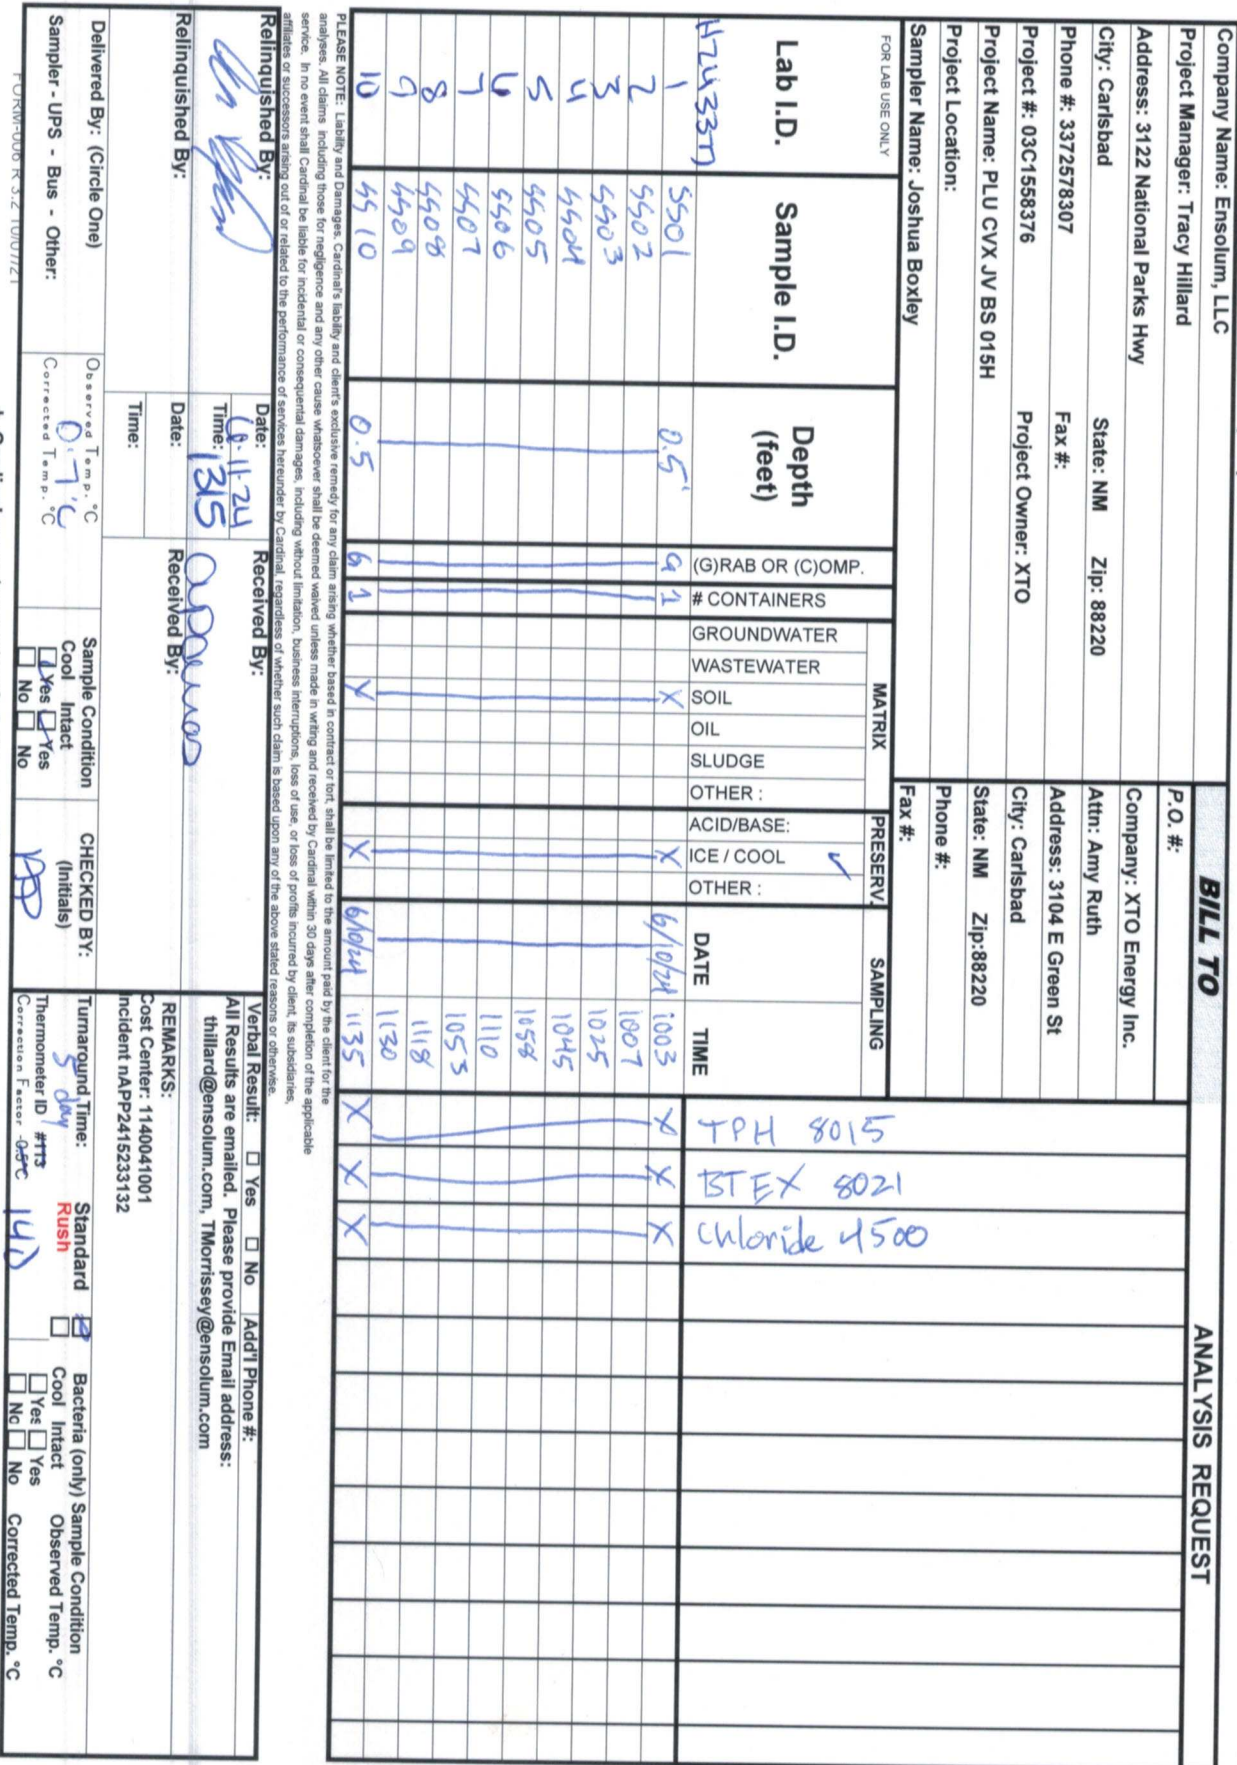 Company Name: Ensolum, LLC
BILL TO
ANALYSIS REQUEST
Project Manager: Tracy Hillard
P.O. #:
Address: 3122 National Parks Hwy
Company: XTO Energy Inc.
City: Carlsbad State: NM Zip: 88220
Attn: Amy Ruth
Phone #: 3372578307 Fax #:
Address: 3104 E Green St
Project #: 03C1558376 Project Owner: XTO
City: Carlsbad
Project Name: PLU CVX JV BS 015H
State: NM Zip:88220
Project Location:
Phone #:
Sampler Name: Joshua Boxley
Fax #:
FOR LAB USE ONLY
MATRIX PRESERV. SAMPLING
Lab I.D. Sample I.D. Depth (feet) (G)RAB OR (C)OMP. # CONTAINERS GROUNDWATER WASTEWATER SOIL OIL SLUDGE OTHER : ACID/BASE: ICE / COOL ✓ OTHER : DATE TIME TPH 8015 BTEX 8021 Chloride 4500
H243377
1 SS01 0.5' G 1 X X 6/10/24 1003 X X X
2 SS02 1007
3 SS03 1025
4 SS04 1045
5 SS05 1058
6 SS06 1110
7 SS07 1053
8 SS08 1118
9 SS09 1130
10 SS10 0.5 G 1 X X 6/10/24 1135 X X X
PLEASE NOTE: Liability and Damages. Cardinal's liability and client's exclusive remedy for any claim arising whether based in contract or tort, shall be limited to the amount paid by the client for the
analyses. All claims including those for negligence and any other cause whatsoever shall be deemed waived unless made in writing and received by Cardinal within 30 days after completion of the applicable
service. In no event shall Cardinal be liable for incidental or consequental damages, including without limitation, business interruptions, loss of use, or loss of profits incurred by client, its subsidiaries,
affiliates or successors arising out of or related to the performance of services hereunder by Cardinal, regardless of whether such claim is based upon any of the above stated reasons or otherwise.
Relinquished By:
Date: 6.11.24
Time: 1315
Received By:
Verbal Result: ☐ Yes ☐ No Add'l Phone #:
All Results are emailed. Please provide Email address:
thillard@ensolum.com, TMorrissey@ensolum.com
Relinquished By:
Date:
Time:
Received By:
REMARKS:
Cost Center: 1140041001
Incident nAPP2415233132
Delivered By: (Circle One)
Sampler - UPS - Bus - Other:
Observed Temp. °C
0.7°C
Corrected Temp. °C
Sample Condition
Cool Intact
Yes Yes
No No
CHECKED BY:
(Initials)
Turnaround Time: Standard
5 day Rush
Thermometer ID #113
Correction Factor -0.5°C
140
Bacteria (only) Sample Condition
Cool Intact Observed Temp. °C
Yes Yes
No No Corrected Temp. °C
FORM-006 R 3.2 10/07/21